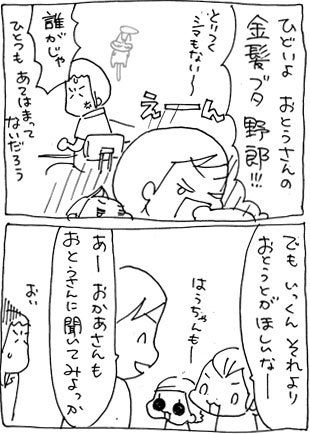 ひどいよ おとうさんの
金髪ブタ
野郎!!!
とりつく
シマもない〜
えーん
誰がじゃ
ひとつも あてはまって
ないだろう
でも いっくん それより
おとうとが ほしいなー
はうちゃんもー
あー おかあさんも
おとうさんに聞いてみよっか